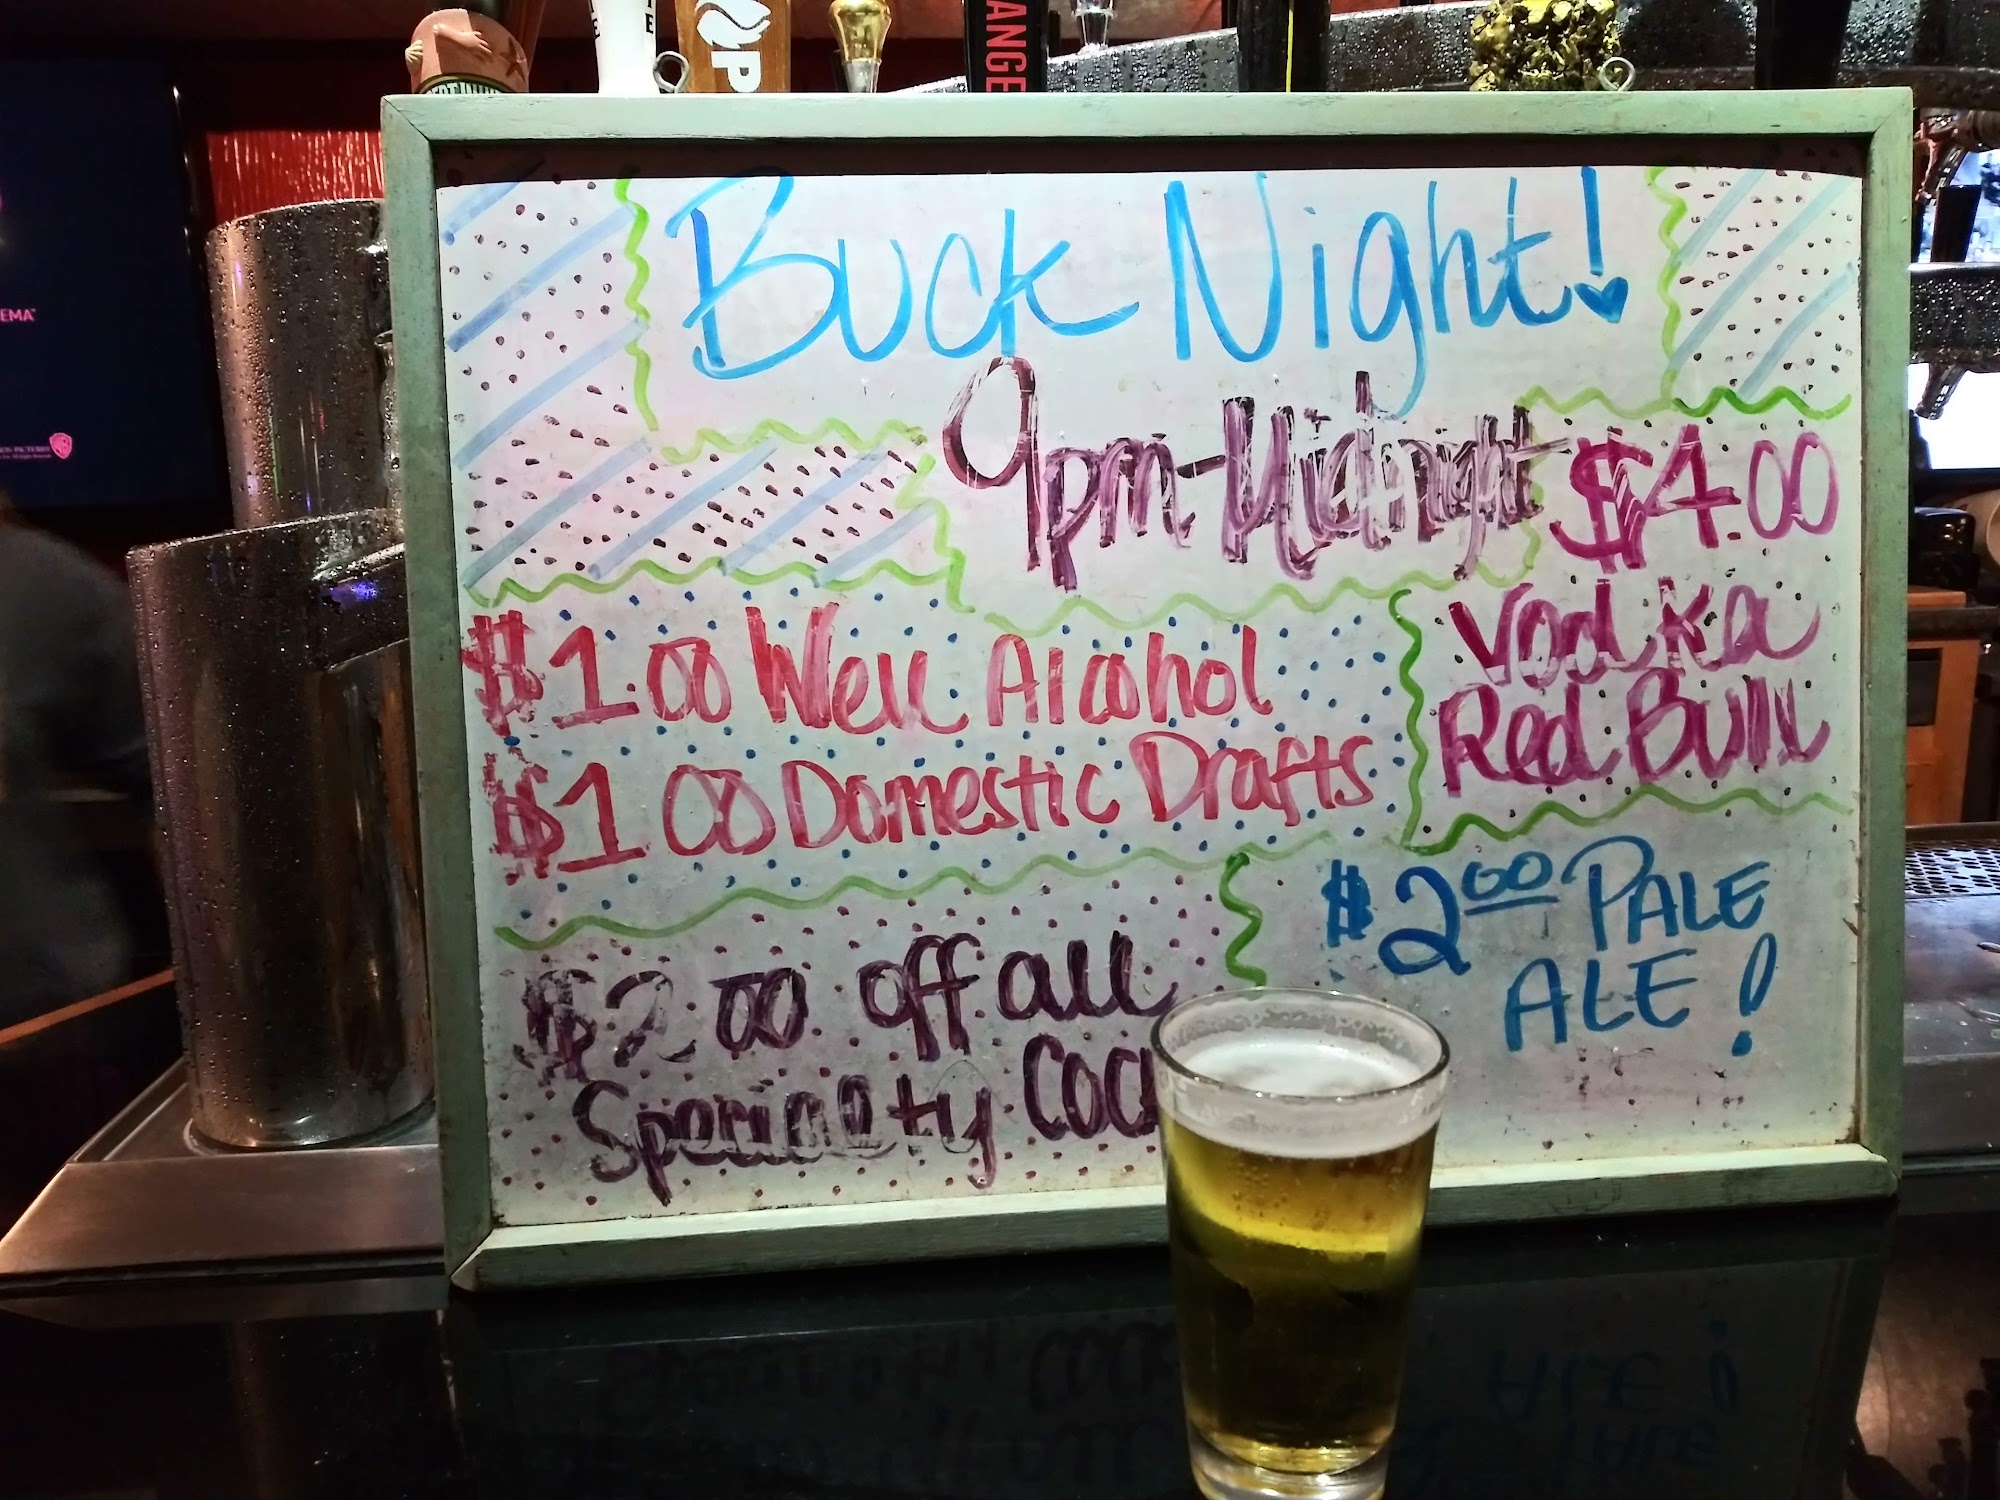 EMA
ANGE
Buck Night!
9pm-Midnight
$4.00
Vodka
Red Bull
$1.00 Well Alcohol
$1.00 Domestic Drafts
$2.00 PALE
ALE!
$2.00 off all
Specialty Coc